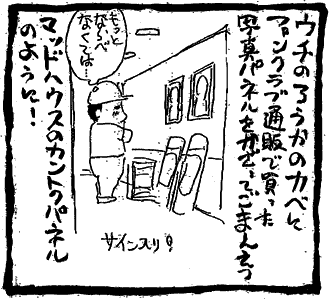 ウチのろうかのカベに
ファンクラブ通販で買った
写真パネルをかざってごまんえつ
もっと
ならべ
なくては…
サイン入り!
マッドハウスのカントクパネル
のように!